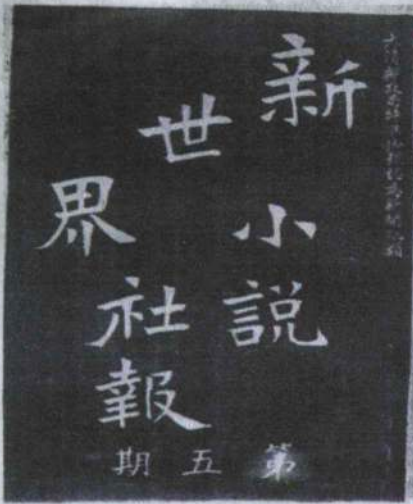 新世界
小説
社報
第五期